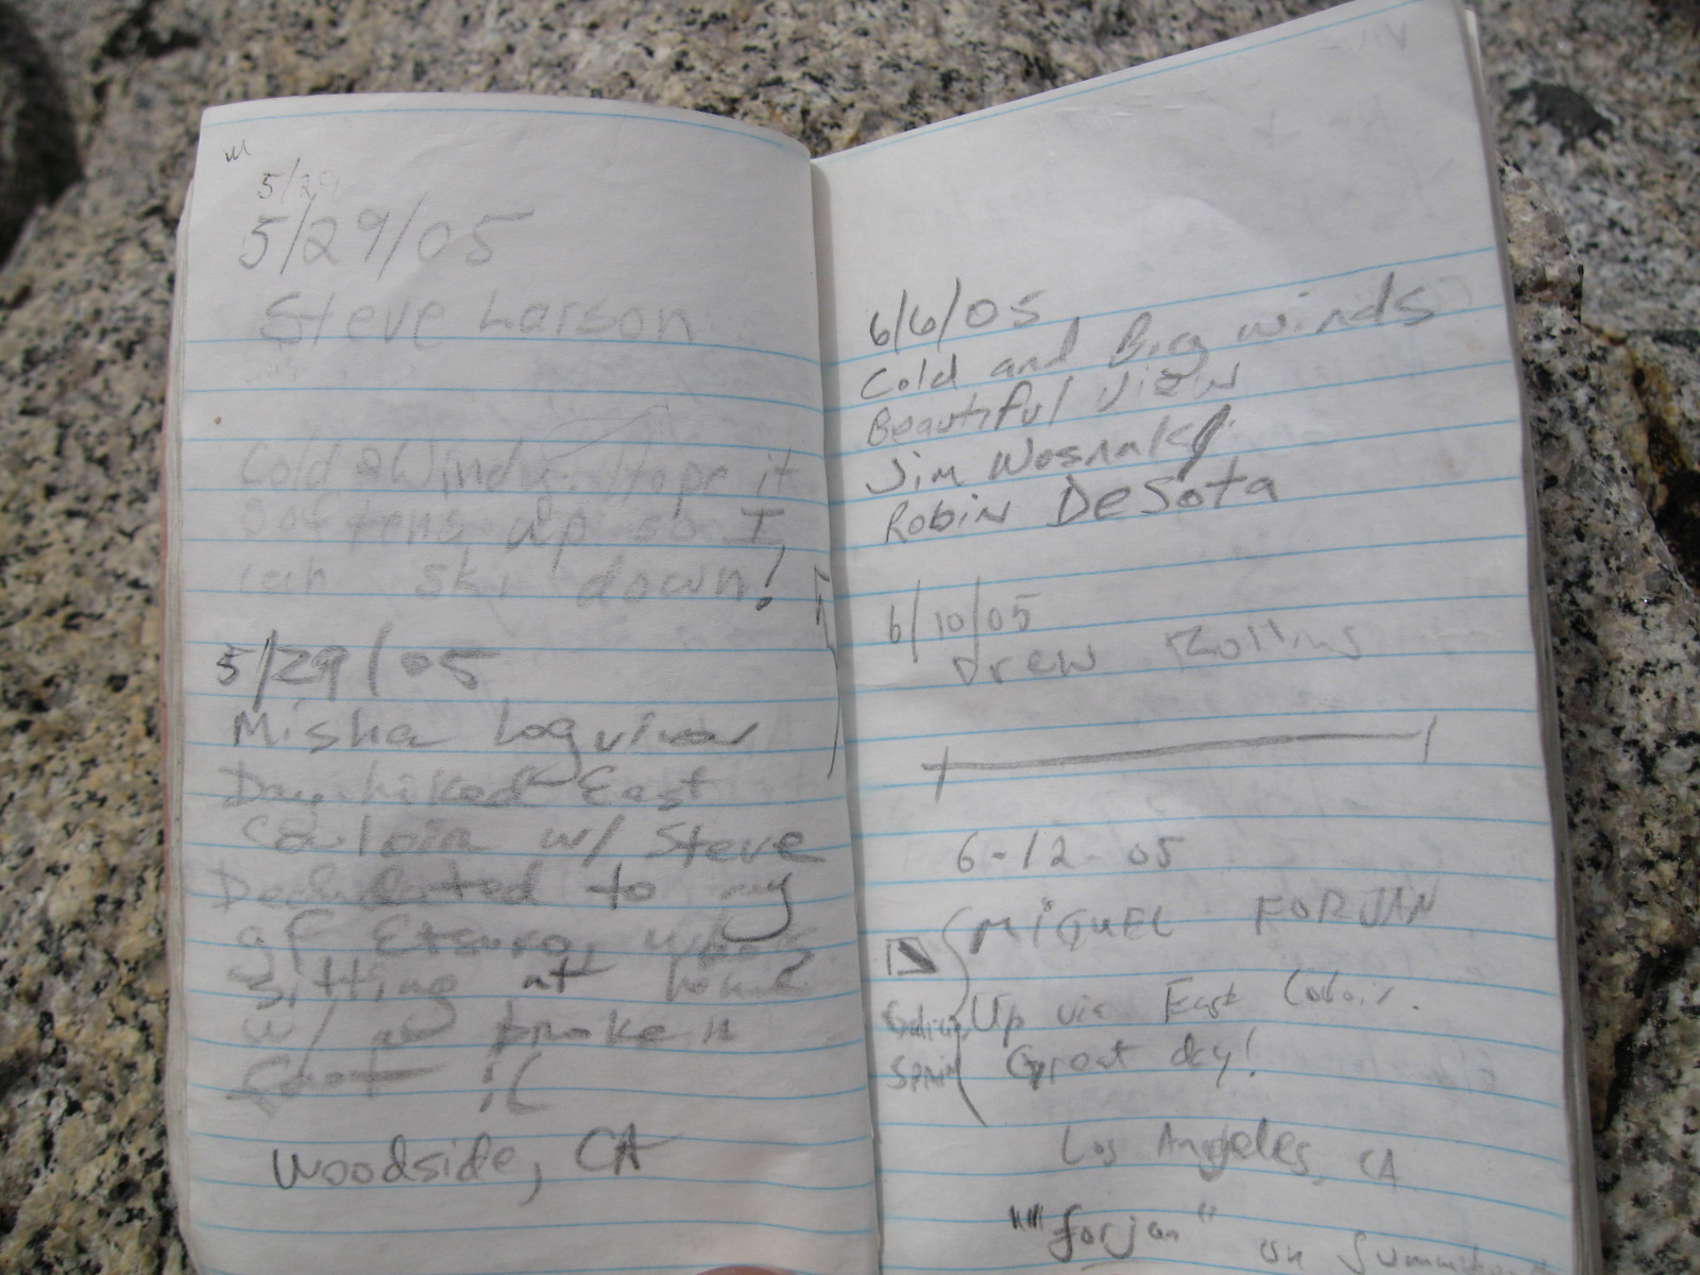 5/29
5/29/05
Steve Larson
Cold & Windy. Hope it
softens up so I
can ski down!
5/29/05
Misha Logvinov
Day hiked East
Couloir w/ Steve
Dedicated to my
gf Etsuro, who's
sitting at home
w/ a broken
foot :(
Woodside, CA
6/6/05
Cold and Big winds
Beautiful View
Jim
Robin DeSota
6/10/05
Drew Rollins
6-12-05
MIGUEL FORJAN
Up via East Coloir.
Great day!
Spain
Los Angeles, CA
"forjan" on